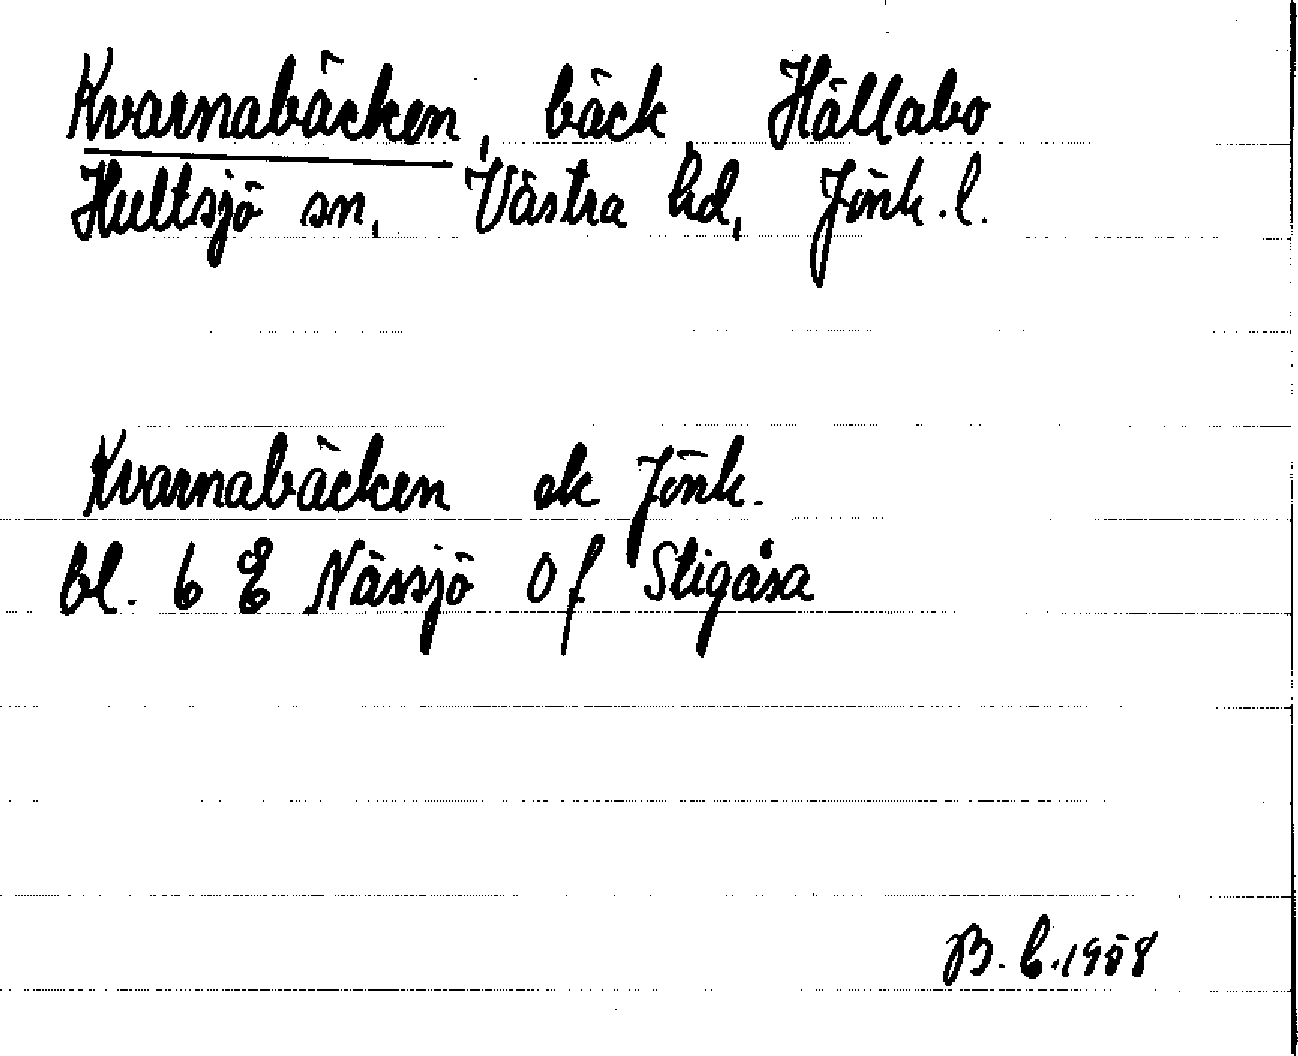 Kvarnabäcken, bäck, Hällabo
Hultsjö sn, Västra hd, Jönk. l.
Kvarnabäcken ek Jönk.
bl. 6 E Nässjö 0f Stigåsa
B. E. 1958